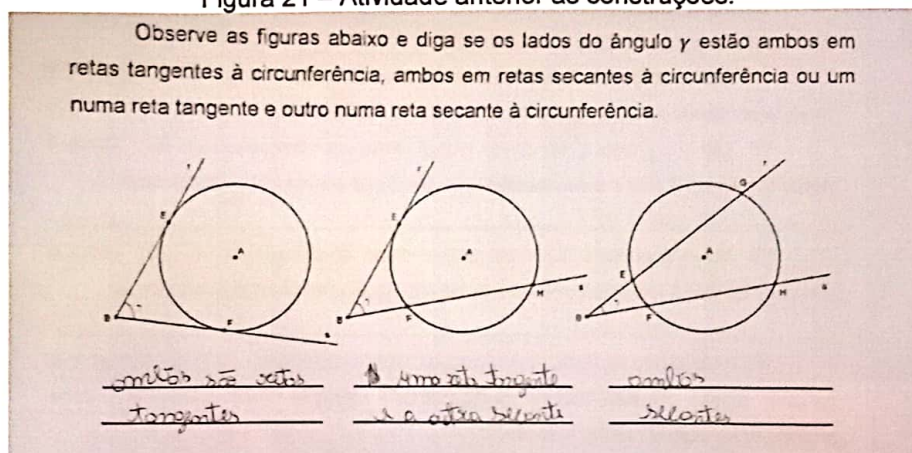 Figura 21 – Atividade anterior às construções.
Observe as figuras abaixo e diga se os lados do ângulo γ estão ambos em
retas tangentes à circunferência, ambos em retas secantes à circunferência ou um
numa reta tangente e outro numa reta secante à circunferência.
r r r
E E G
A A A
E
H s H s
B γ F B γ F B γ F
s
ambos são retas uma reta tangente ambos
tangentes e a outra secante secantes